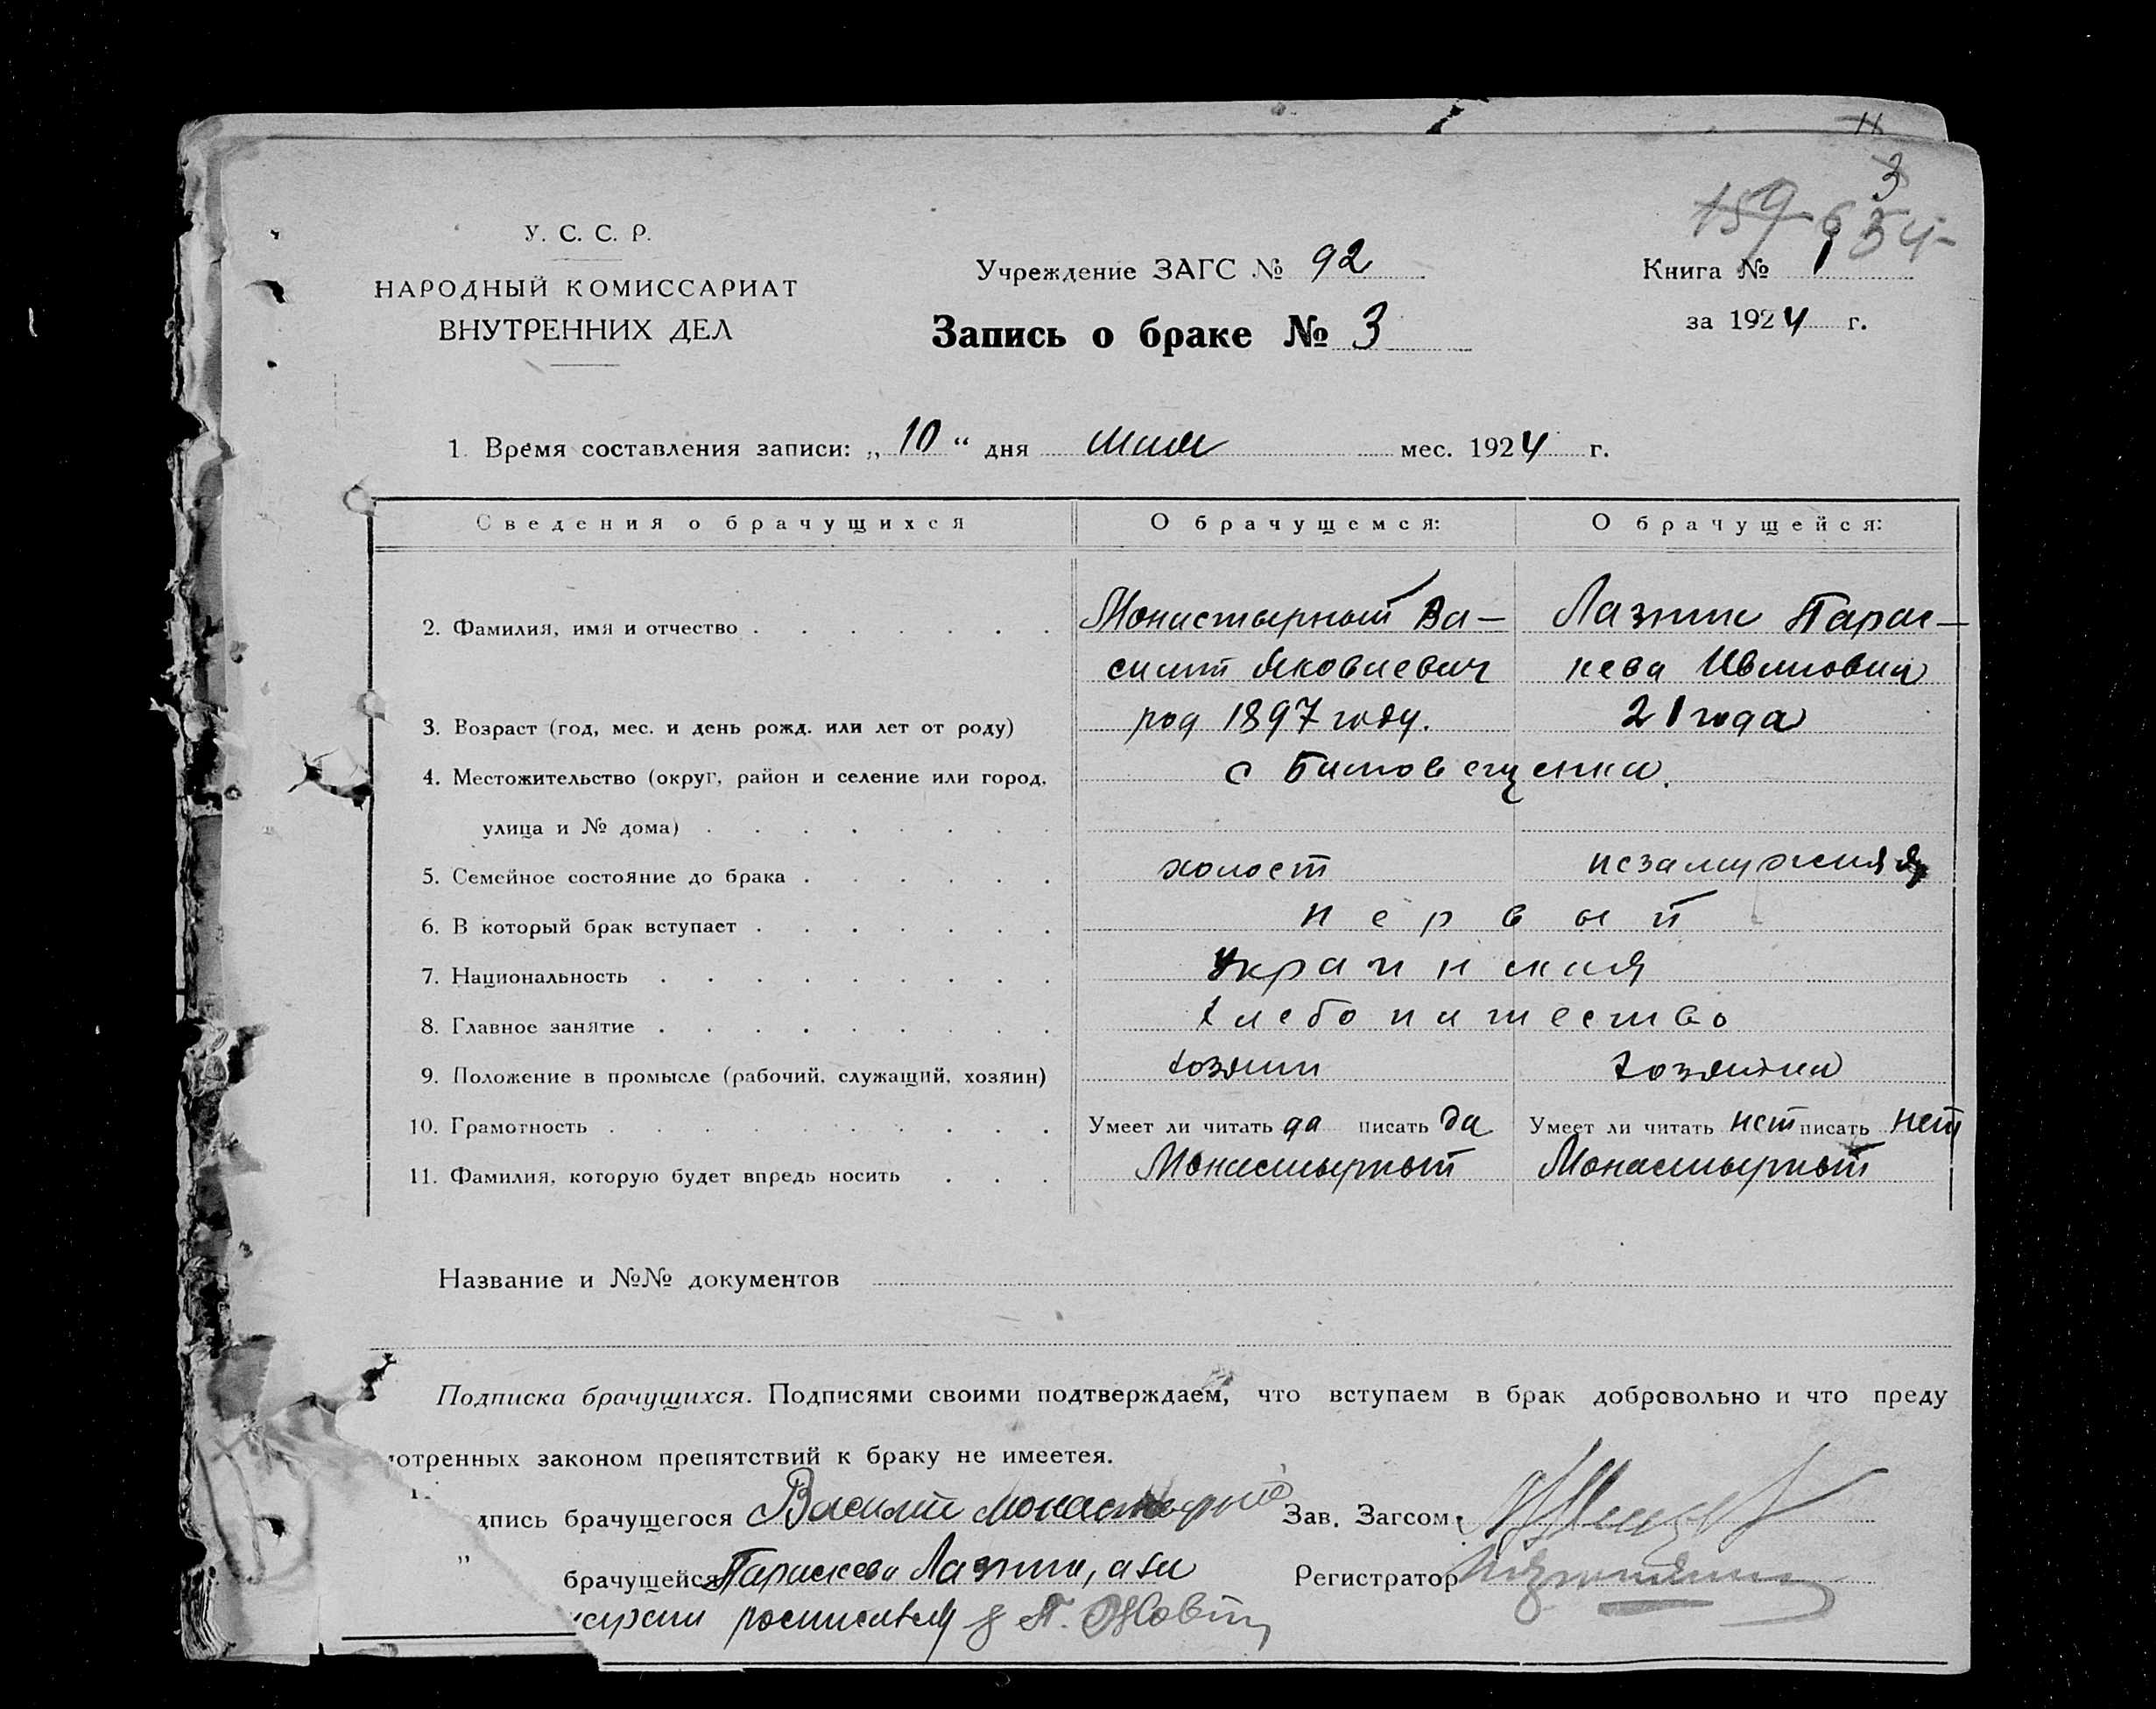 3
159 654
У. С. С. Р.
НАРОДНЫЙ КОМИССАРИАТ
ВНУТРЕННИХ ДЕЛ
Учреждение ЗАГС № 92
Книга № 1
Запись о браке № 3
за 1924 г.
1. Время составления записи: „ 10 “ дня мая мес. 1924 г.
Сведения о брачущихся О брачущемся: О брачущейся:
2. Фамилия, имя и отчество Монастырный Ва- Парас-
силий Яковлевич кева Ивановна
3. Возраст (год, мес. и день рожд. или лет от роду) род 1897 году. 21 года
4. Местожительство (округ, район и селение или город, с
улица и № дома)
5. Семейное состояние до брака холост незамужняя
6. В который брак вступает первый
7. Национальность Украинская
8. Главное занятие хлебопашество
9. Положение в промысле (рабочий, служащий, хозяин) хозяин хозяйка
10. Грамотность Умеет ли читать да писать да Умеет ли читать нет писать нет
11. Фамилия, которую будет впредь носить Монастырный Монастырный
Название и №№ документов
Подписка брачущихся. Подписями своими подтверждаем, что вступаем в брак добровольно и что преду
мотренных законом препятствий к браку не имеетея.
дпись брачущегося Василий Монастырный Зав. Загсом
" брачущейся Параскева Регистратор